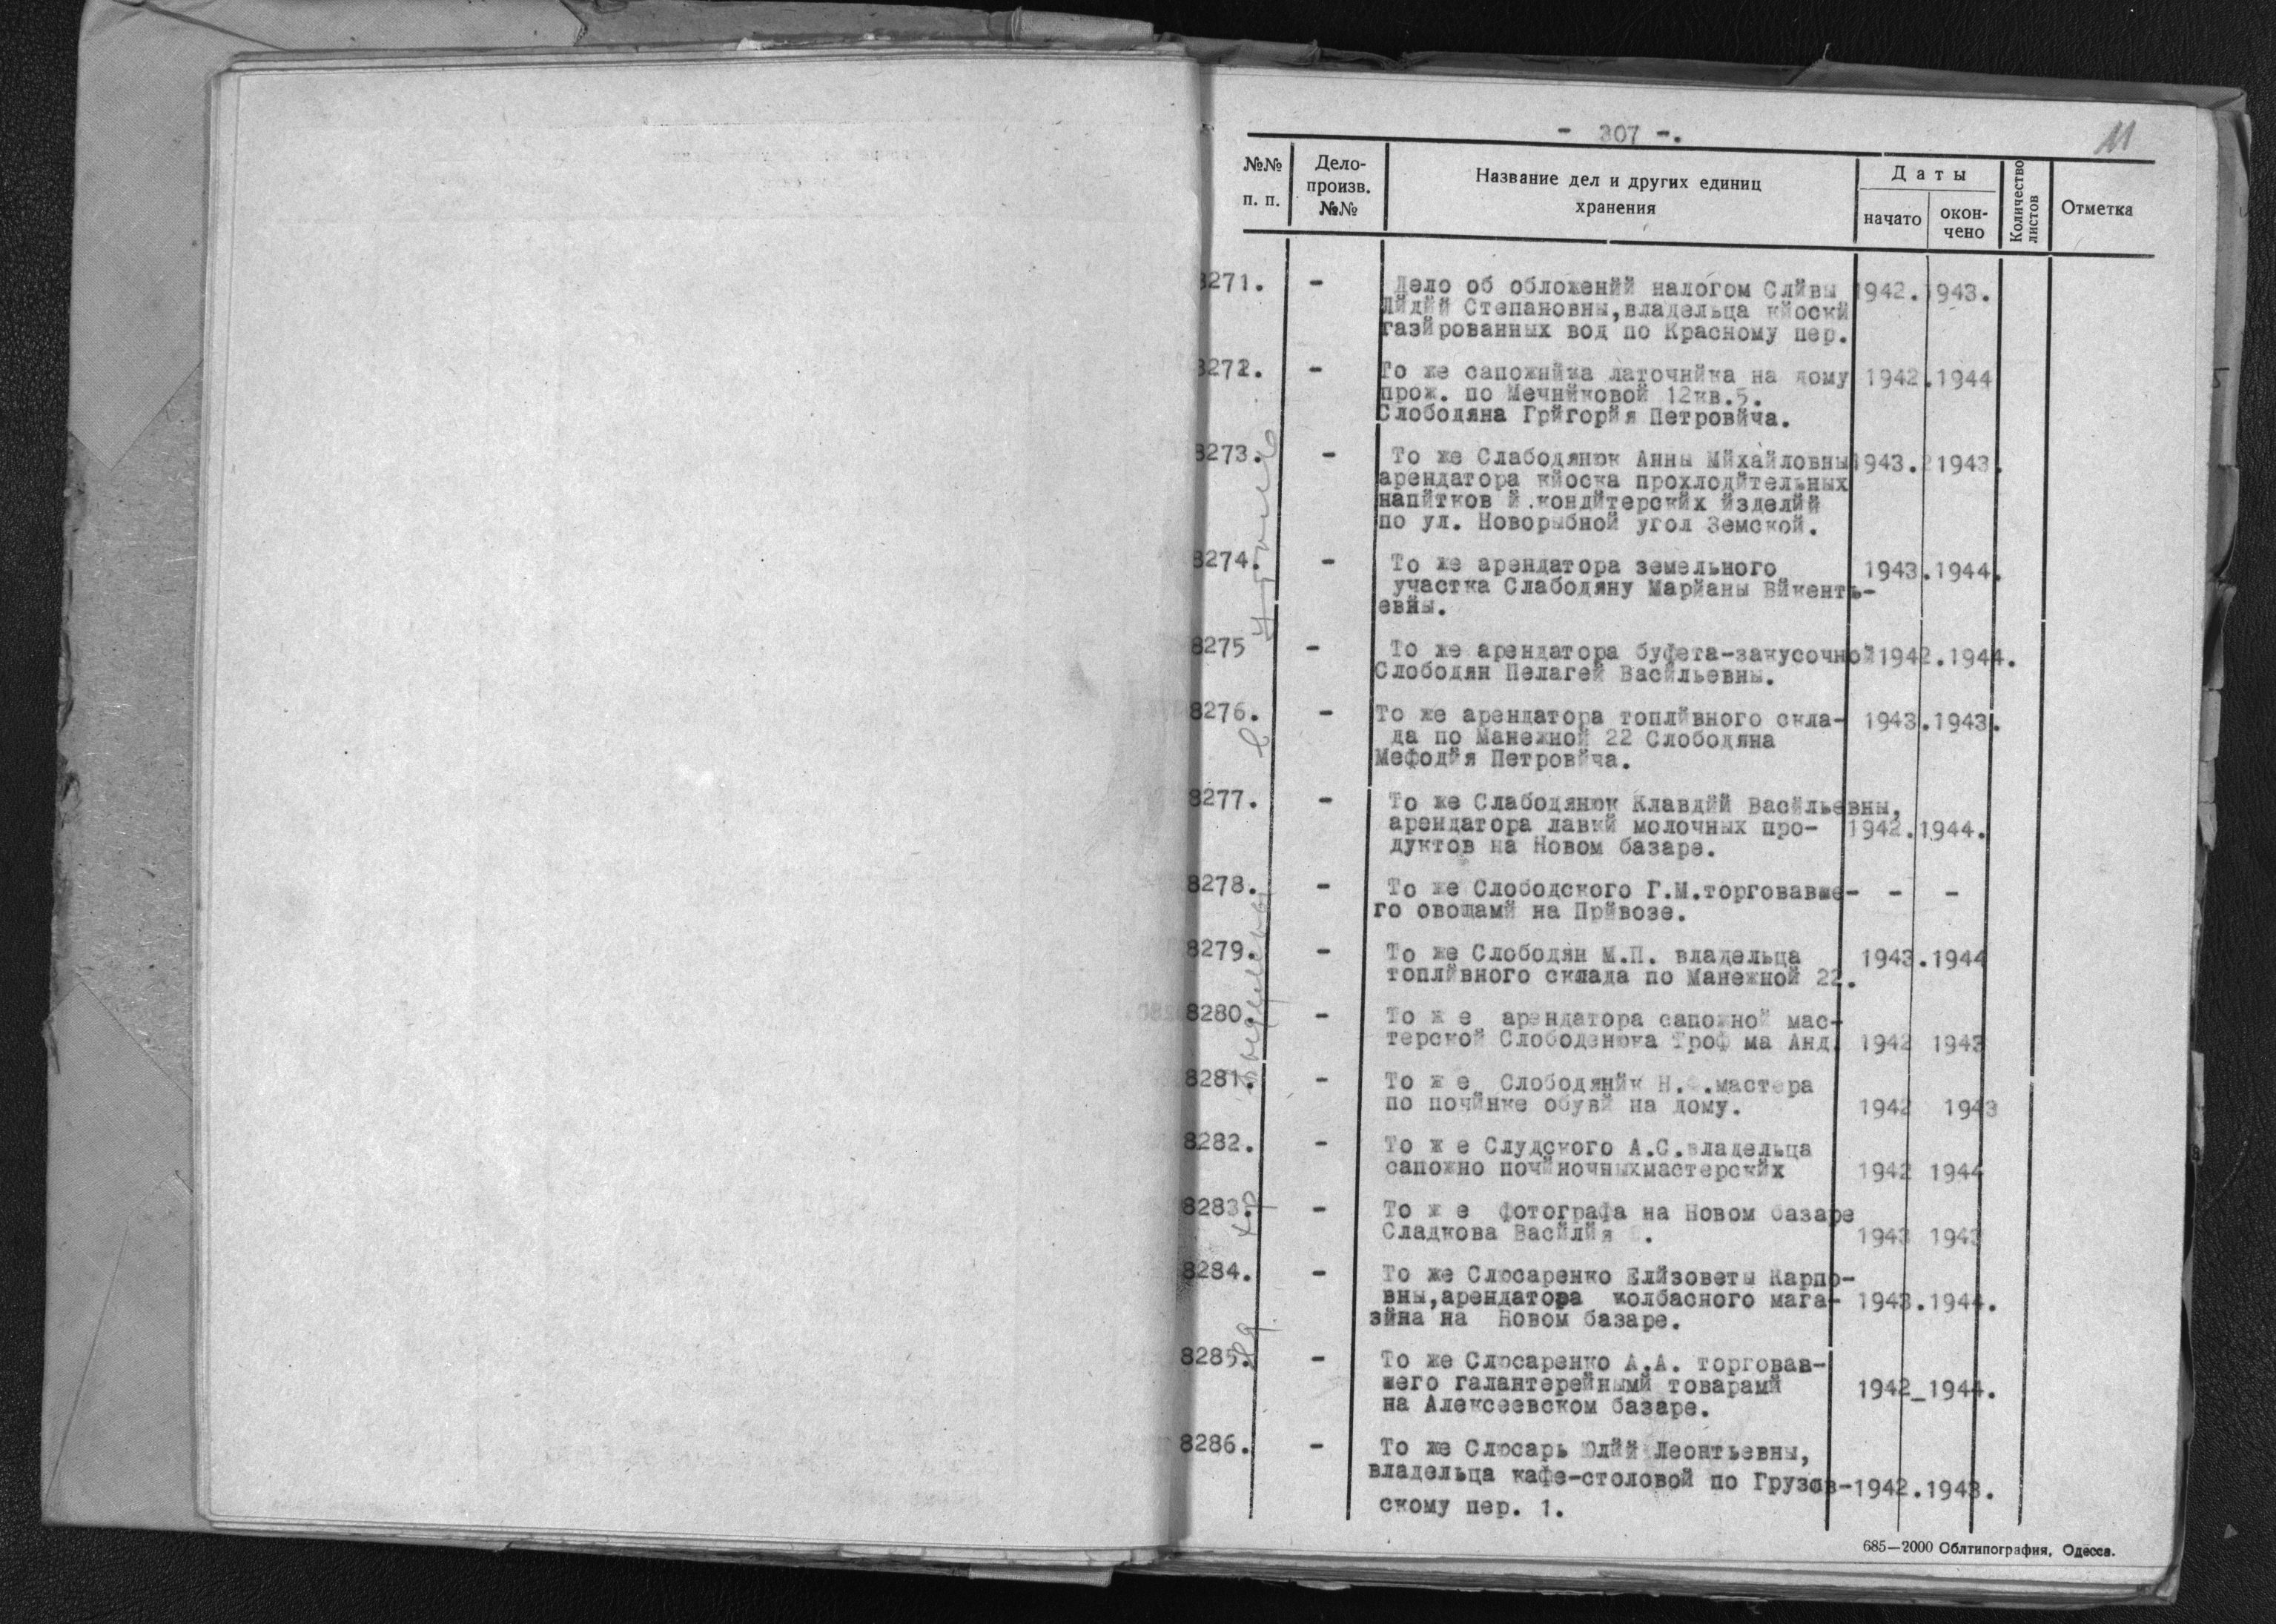 - 307 -.
11
№№ п. п.
Дело-произв. №№
Название дел и других единиц хранения
Даты
начато
окон-чено
Количество листов
Отметка
8271. - Дело об обложенйй налогом Слйвы 1942. 1943.
Лйдйй Степановны,владельца кйоскй
газйрованных вод по Красному пер.
8272. - То же сапожнйка латочнйка на дому 1942.1944
прож. по Мечнйковой 12кв.5.
Слободяна Грйгорйя Петровйча.
8273. - То же Слабодянюк Анны Мйхайловны 1943. 1943.
арендатора кйоска прохлодйтельных
напйтков й.кондйтерскйх йзделйй
по ул. Новорыбной угол Земской.
8274. - То же арендатора земельного 1943.1944.
участка Слабодяну Марйаны Вйкенть-
евны.
8275 - То же арендатора буфета-закусочной 1942.1944.
Слободян Пелагей Васйльевны.
8276. - То же арендатора топлйвного скла- 1943.1943.
да по Манежной 22 Слободяна
Мефодйя Петровйча.
8277. - То же Слабодянюк Клавдйй Васйльевны,
арендатора лавкй молочных про- 1942.1944.
дуктов на Новом базаре.
8278. - То же Слободского Г.М.торговавше- - -
го овощамй на Прйвозе.
8279. - То же Слободян М.П. владельца 1943.1944
топлйвного склада по Манежной 22.
8280. - То ж е арендатора сапожной мас-
терской Слободенюка Троф ма Анд. 1942 1943
8281. - То ж е Слободянйк Н. .мастера
по почйнке обувй на дому. 1942 1943
8282. - То ж е Слудского А.С.владельца
сапожно почйночныхмастерскйх 1942 1944
8283. - То ж е фотографа на Новом базаре
Сладкова Васйлйя . 1943 1943
8284. - То же Слюсаренко Елйзоветы Карпо-
вны,арендатора колбасного мага- 1943.1944.
зйна на Новом базаре.
8285. - То же Слюсаренко А.А. торговав-
шего галантерейнымй товарамй 1942_1944.
на Алексеевском базаре.
8286. - То же Слюсарь Юлйй Леонтьевны,
владельца кафе-столовой по Грузов-1942.1943.
скому пер. 1.
685—2000 Облтипография, Одесса.